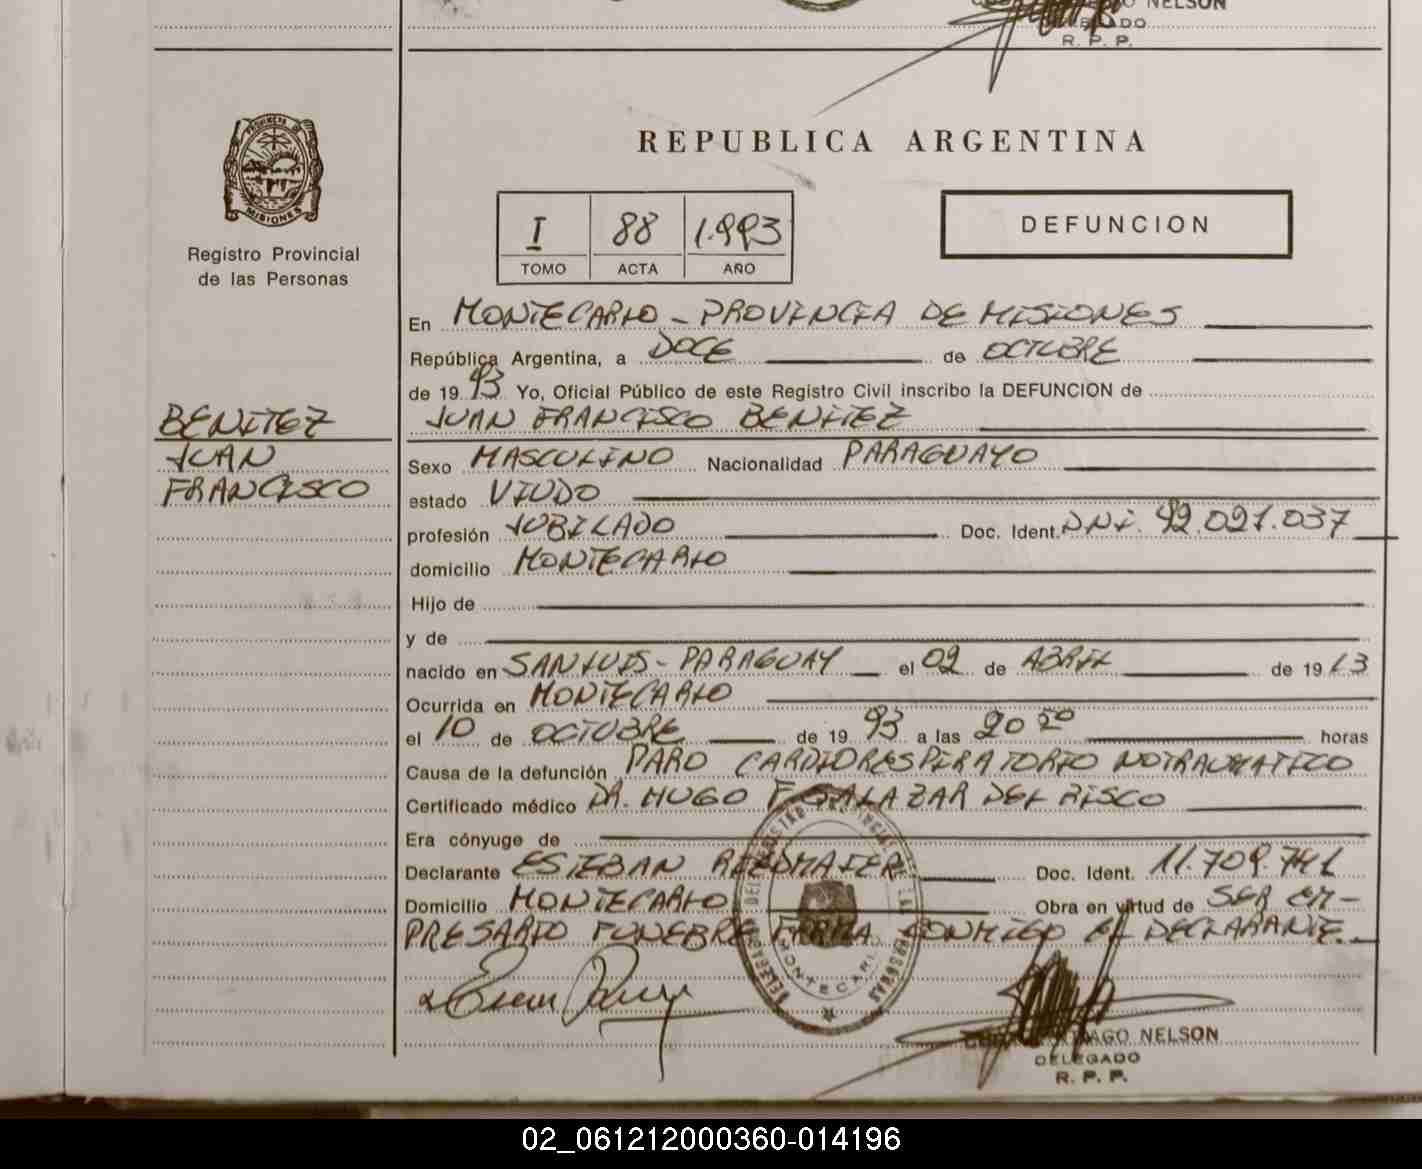 NELSON
R. P. P.
PROVINCIA DE
MISIONES
Registro Provincial
de las Personas
REPUBLICA ARGENTINA
I 88 1.993
TOMO ACTA AÑO
DEFUNCION
En MONTECARLO - PROVINCIA DE MISIONES
República Argentina, a DOCE de OCTUBRE
de 19 93 Yo, Oficial Público de este Registro Civil inscribo la DEFUNCION de
BENITEZ
JUAN
FRANCISCO
JUAN FRANCISCO BENITEZ
Sexo MASCULINO Nacionalidad PARAGUAYO
estado VIUDO
profesión JUBILADO Doc. Ident. DNI. 92.021.037
domicilio MONTECARLO
Hijo de
y de
nacido en SAN LUIS - PARAGUAY el 02 de ABRIL de 19 13
Ocurrida en MONTECARLO
el 10 de OCTUBRE de 19 93 a las 20 horas
Causa de la defunción PARO CARDIORESPIRATORIO NO TRAUMATICO
Certificado médico DR. HUGO F. SALAZAR DEL RISCO
Era cónyuge de
Declarante ESTEBAN Doc. Ident. 11.709.741
Domicilio MONTECARLO Obra en virtud de SER EM-
PRESARIO FUNEBRE FIRMA CONMIGO EL DECLARANTE.
MONTECARLO
NELSON
DELEGADO
R. P. P.
02_061212000360-014196